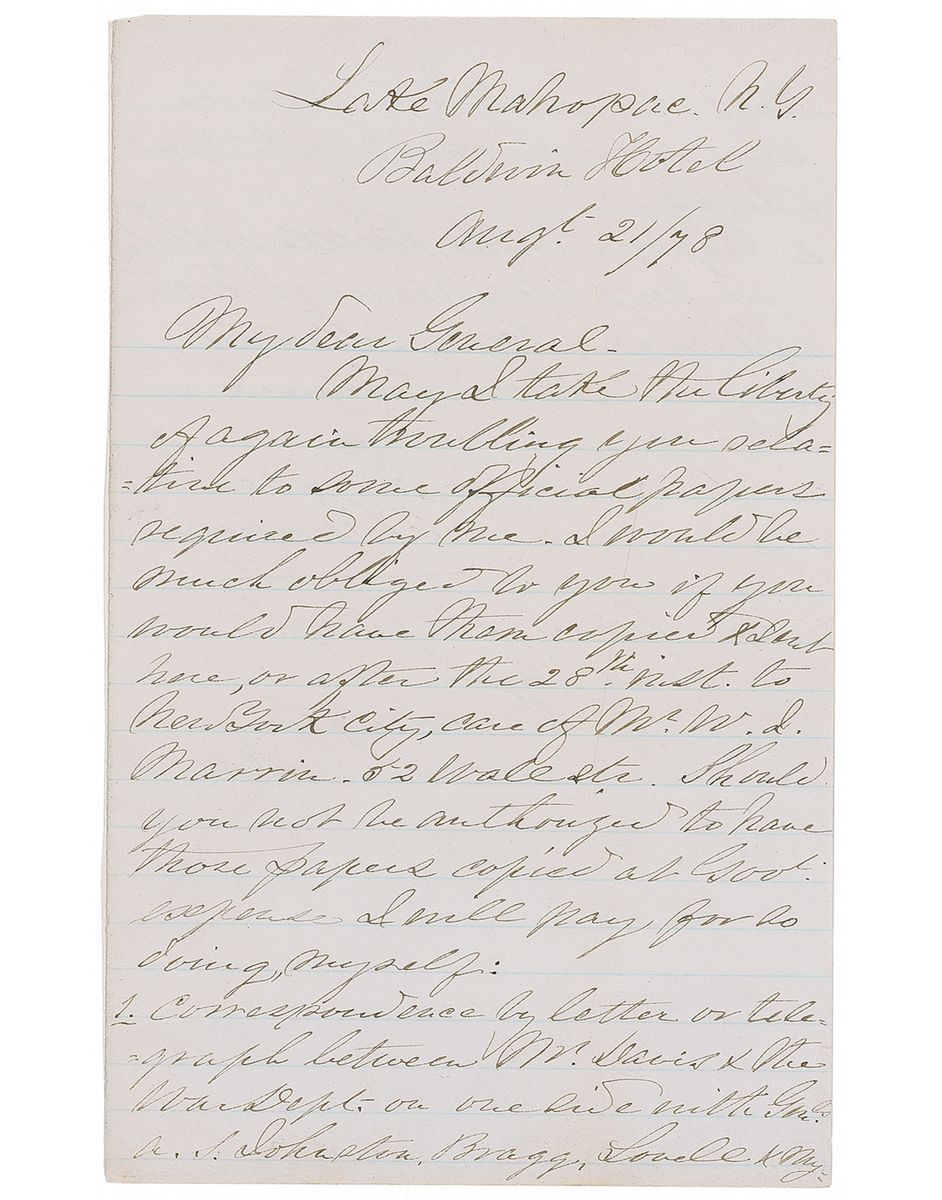 Lake Mahopac. N. Y.
Baldwin Hotel
Augt. 21/78
My dear General-
May I take the liberty
of again troubling you rela=
=tive to some official papers
required by me. I would be
much obliged to you if you
would have them copied & sent
here, or after the 28th inst. to
New York city, care of Mr. W. J.
Marrin. 52 Wall str. Should
you not be authorized to have
those papers copied at Govt.
expense I will pay, for so
doing, myself:
1. Correspondence by letter or tele=
=graph between Mr. Davis & the
War Dept. on one side with Genls.
A. S. Johnston, Bragg, Lovell & My=